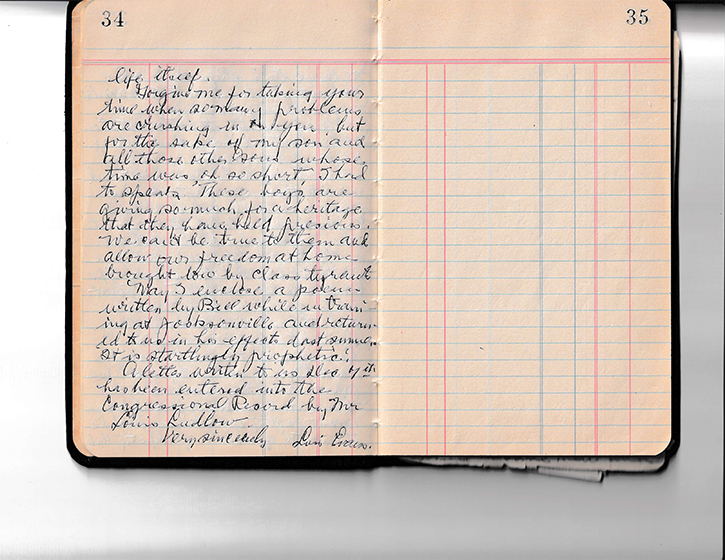 34
35
life itself.
Forgive me for taking your
time when so many problems
are crushing in on you, but
for the sake of my son and
all those other sons whose
time was oh so short I had
to speak. These boys are
giving so much for a heritage
that they have held presious.
We can't be true to them and
allow our freedom at home
brought low by class
May I enclose a poem
written by Bill while in train-
ing at Jacksonville and return-
ed to us in his effects last summer
It is startlingly prophetic!
A letter written to us
has been entered into the
Congressional Record by Mr
Louis Ludlow.
Very sincerely Lois